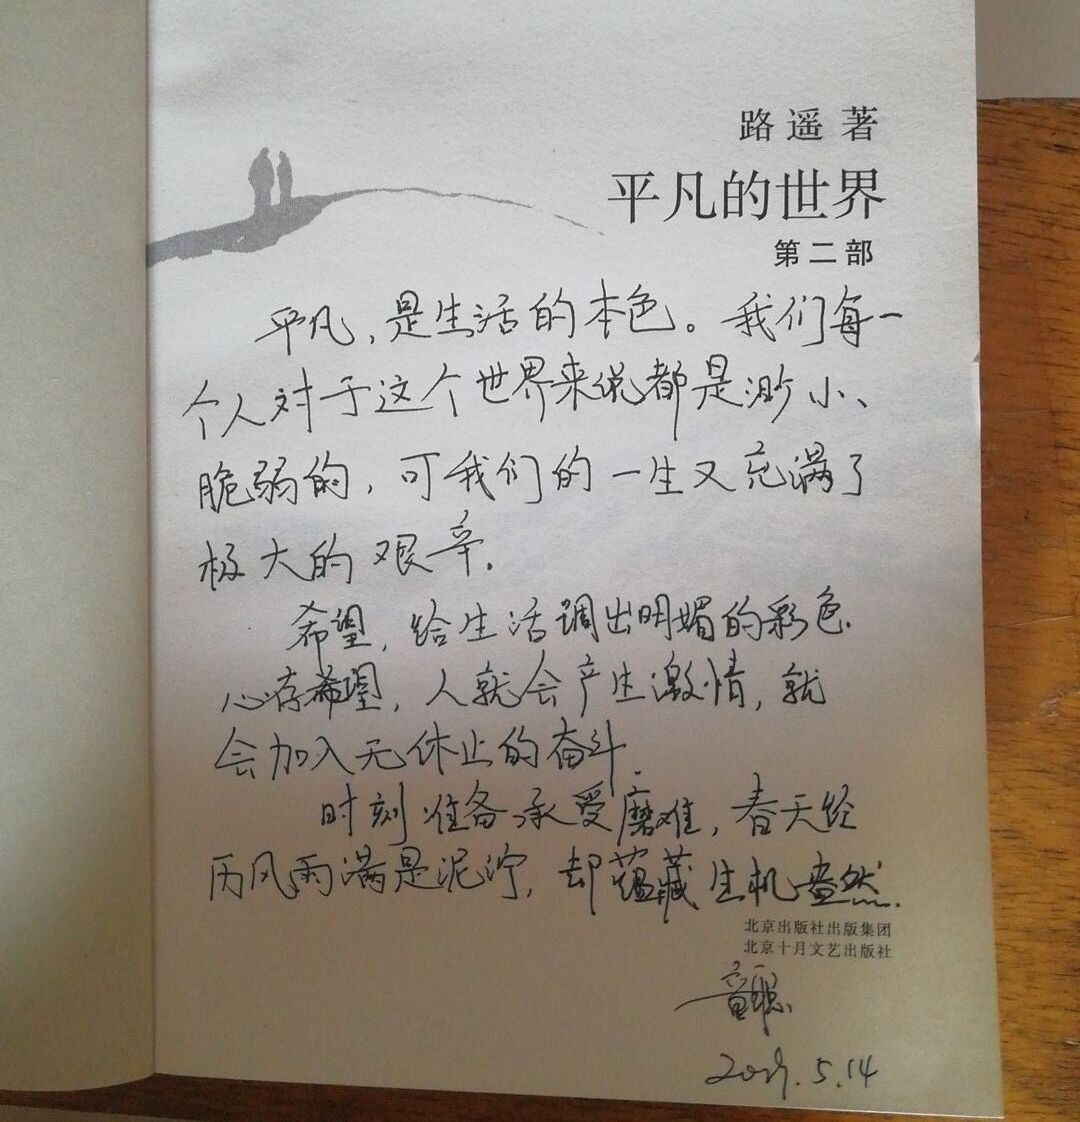 路遥 著
平凡的世界
第二部
平凡,是生活的本色。我们每一
个人对于这个世界来说都是渺小、
脆弱的,可我们的一生又充满了
极大的艰辛.
希望,给生活调出明媚的彩色.
心存希望,人就会产生激情,就
会加入无休止的奋斗.
时刻准备承受磨难,春天经
历风雨满是泥泞,却蕴藏生机盎然.
北京出版社出版集团
北京十月文艺出版社
5.14